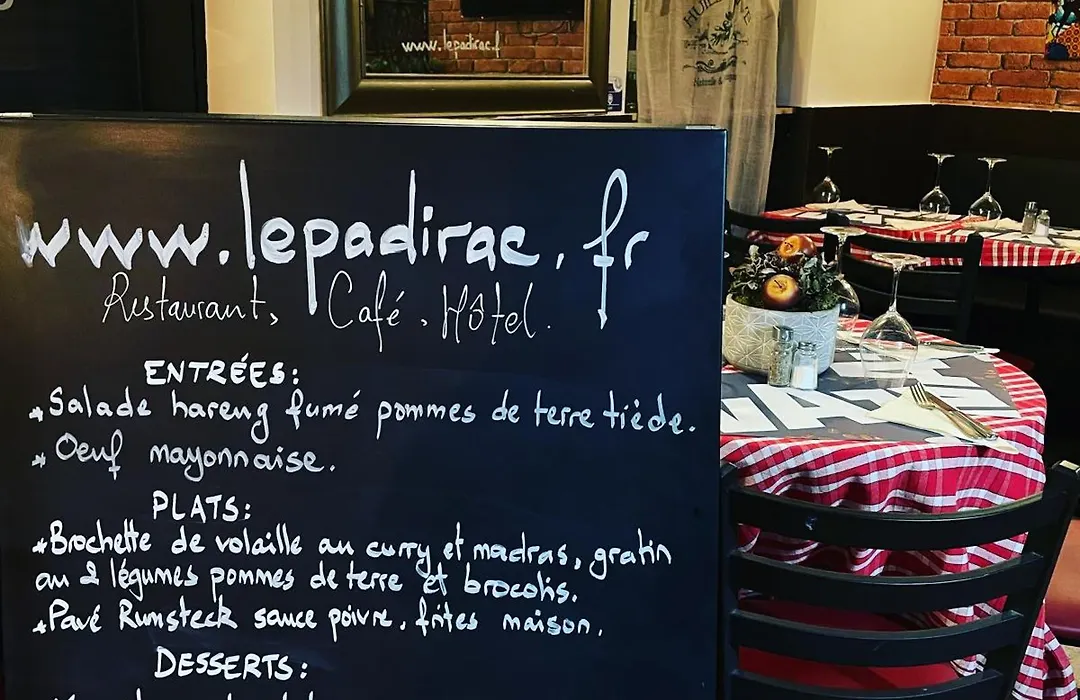 www.lepadirac.f
www.lepadirac.fr
Restaurant, Café, Hôtel.
ENTRÉES:
* Salade hareng fumé pommes de terre tiède.
* Oeuf mayonnaise.
PLATS:
* Brochette de volaille au curry et madras, gratin
au 2 légumes pommes de terre et brocolis.
* Pavé Rumsteck sauce poivre, frites maison.
DESSERTS: